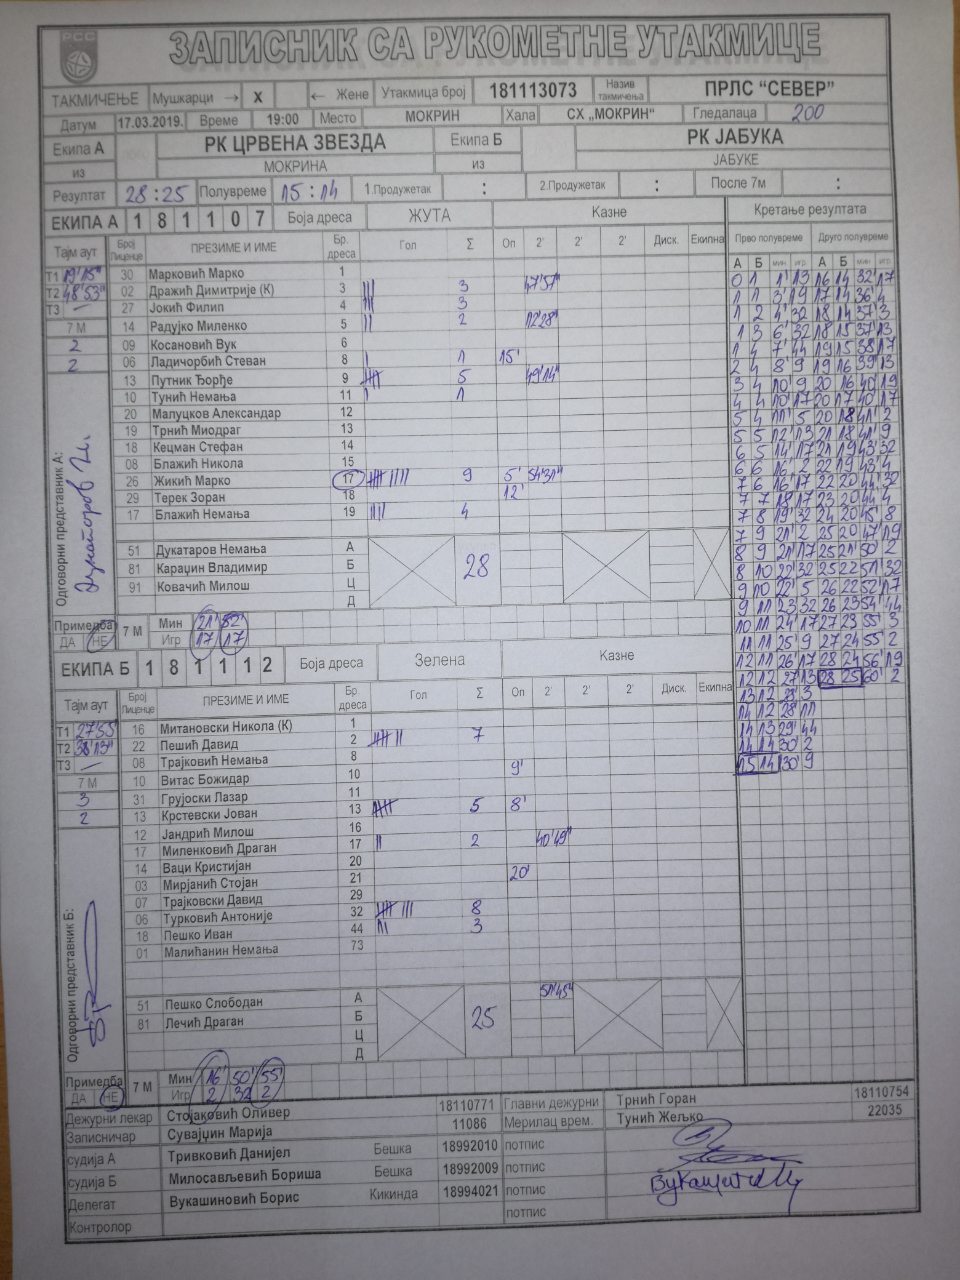 РСС
ЗАПИСНИК СА РУКОМЕТНЕ УТАКМИЦЕ
ТАКМИЧЕЊЕ Мушкарци → X ← Жене Утакмица број 181113073 Назив такмичења ПРЛС "СЕВЕР"
Датум 17.03.2019. Време 19:00 Место МОКРИН Хала СХ „МОКРИН" Гледалаца 200
Екипа А РК ЦРВЕНА ЗВЕЗДА Екипа Б РК ЈАБУКА
из МОКРИНА из ЈАБУКЕ
Резултат 28:25 Полувреме 15:14 1.Продужетак : 2.Продужетак : После 7м :
ЕКИПА А 1 8 1 1 0 7 Боја дреса ЖУТА Казне Кретање резултата
Тајм аут Број Лиценце ПРЕЗИМЕ И ИМЕ Бр. дреса Гол Σ Оп 2' 2' 2' Диск. Екипна Прво полувреме Друго полувреме
А Б мин игр А Б мин игр
Т1 19'15" 30 Марковић Марко 1
Т2 48'53" 02 Дражић Димитрије (К) 3 ||| 3 47'51"
Т3 — 27 Јокић Филип 4 ||| 3
7 М 14 Радујко Миленко 5 || 2 12'28"
2 09 Косановић Вук 6
2 06 Ладичорбић Стеван 8 | 1 15'
13 Путник Ђорђе 9 5 49'14"
10 Тунић Немања 11 | 1
20 Малуцков Александар 12
19 Трнић Миодраг 13
18 Кецман Стефан 14
08 Блажић Никола 15
26 Жикић Марко 17 9 5' 54'31"
29 Терек Зоран 18 12'
17 Блажић Немања 19 |||| 4
Одговорни представник А:
51 Дукатаров Немања А
81 Караџин Владимир Б 28
91 Ковачић Милош Ц
Д
Примедба ДА НЕ 7 М Мин 21' 52'
Игр 17 17
ЕКИПА Б 1 8 1 1 1 2 Боја дреса Зелена Казне
Тајм аут Број Лиценце ПРЕЗИМЕ И ИМЕ Бр. дреса Гол Σ Оп 2' 2' 2' Диск. Екипна
Т1 27'55" 16 Митановски Никола (К) 1
Т2 38'13" 22 Пешић Давид 2 7
Т3 — 08 Трајковић Немања 8
7 М 10 Витас Божидар 10 9'
3 31 Грујоски Лазар 11
2 13 Крстевски Јован 13 5 8'
12 Јандрић Милош 16
17 Миленковић Драган 17 || 2 40'49"
14 Ваци Кристијан 20
03 Мирјанић Стојан 21 20'
07 Трајковски Давид 29
06 Турковић Антоније 32 8
18 Пешко Иван 44 3
01 Малићанин Немања 73
Одговорни представник Б:
51 Пешко Слободан А 51'45"
81 Лечић Драган Б 25
Ц
Д
Примедба ДА НЕ 7 М Мин 16' 50' 55'
Игр 2 32 2
0 1 1' 13 16 14 32' 17
1 1 3' 19 17 14 36' 4
1 2 4' 32 18 14 37' 3
1 3 6' 32 18 15 37' 13
1 4 7' 44 19 15 38' 17
2 4 8' 9 19 16 39' 13
3 4 10' 9 20 16 40' 19
4 4 10' 17 20 17 40' 17
5 4 11' 5 20 18 41' 2
5 5 12' 13 21 18 41' 9
6 5 14' 17 21 19 43' 32
6 6 16' 2 22 19 43' 4
7 6 16' 17 22 20 44' 32
7 7 18' 17 23 20 44' 4
7 8 19' 32 24 20 45' 8
7 9 21' 2 25 20 47' 19
8 9 21' 17 25 21 50' 2
8 10 22' 32 25 22 51' 32
9 10 22' 5 26 22 52' 17
9 11 23' 32 26 23 54' 44
10 11 24' 17 27 23 55' 3
11 11 25' 9 27 24 55' 2
12 11 26' 17 28 24 56' 19
12 12 27' 13 28 25 60' 2
13 12 28' 3
14 12 28' 11
14 13 29' 44
14 14 30' 2
15 14 30' 9
Дежурни лекар Стојаковић Оливер 18110771 Главни дежурни Трнић Горан 18110754
Записничар Сувајџин Марија 11086 Мерилац врем. Тунић Жељко 22035
судија А Тривковић Данијел Бешка 18992010 потпис
судија Б Милосављевић Бориша Бешка 18992009 потпис
Делегат Вукашиновић Борис Кикинда 18994021 потпис
Контролор потпис